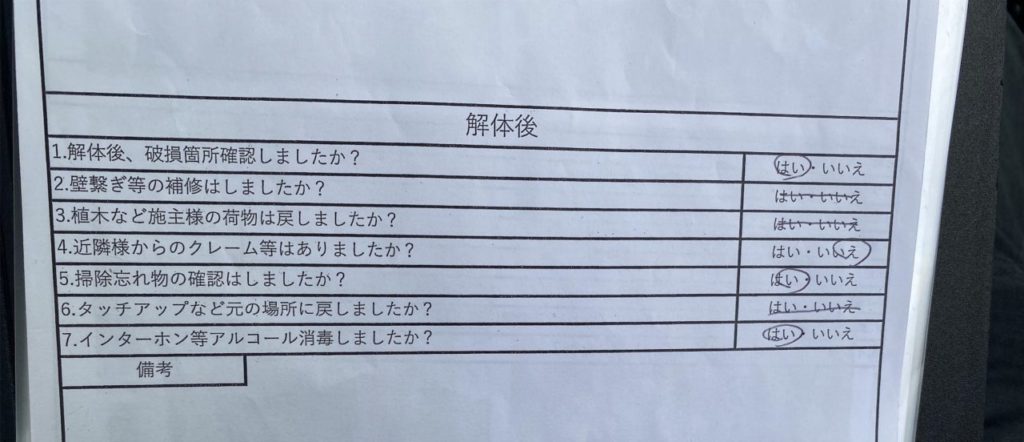 解体後
1.解体後、破損箇所確認しましたか？ はい・いいえ
2.壁繋ぎ等の補修はしましたか？ はい・いいえ
3.植木など施主様の荷物は戻しましたか？ はい・いいえ
4.近隣様からのクレーム等はありましたか？ はい・いいえ
5.掃除忘れ物の確認はしましたか？ はい・いいえ
6.タッチアップなど元の場所に戻しましたか？ はい・いいえ
7.インターホン等アルコール消毒しましたか？ はい・いいえ
備考